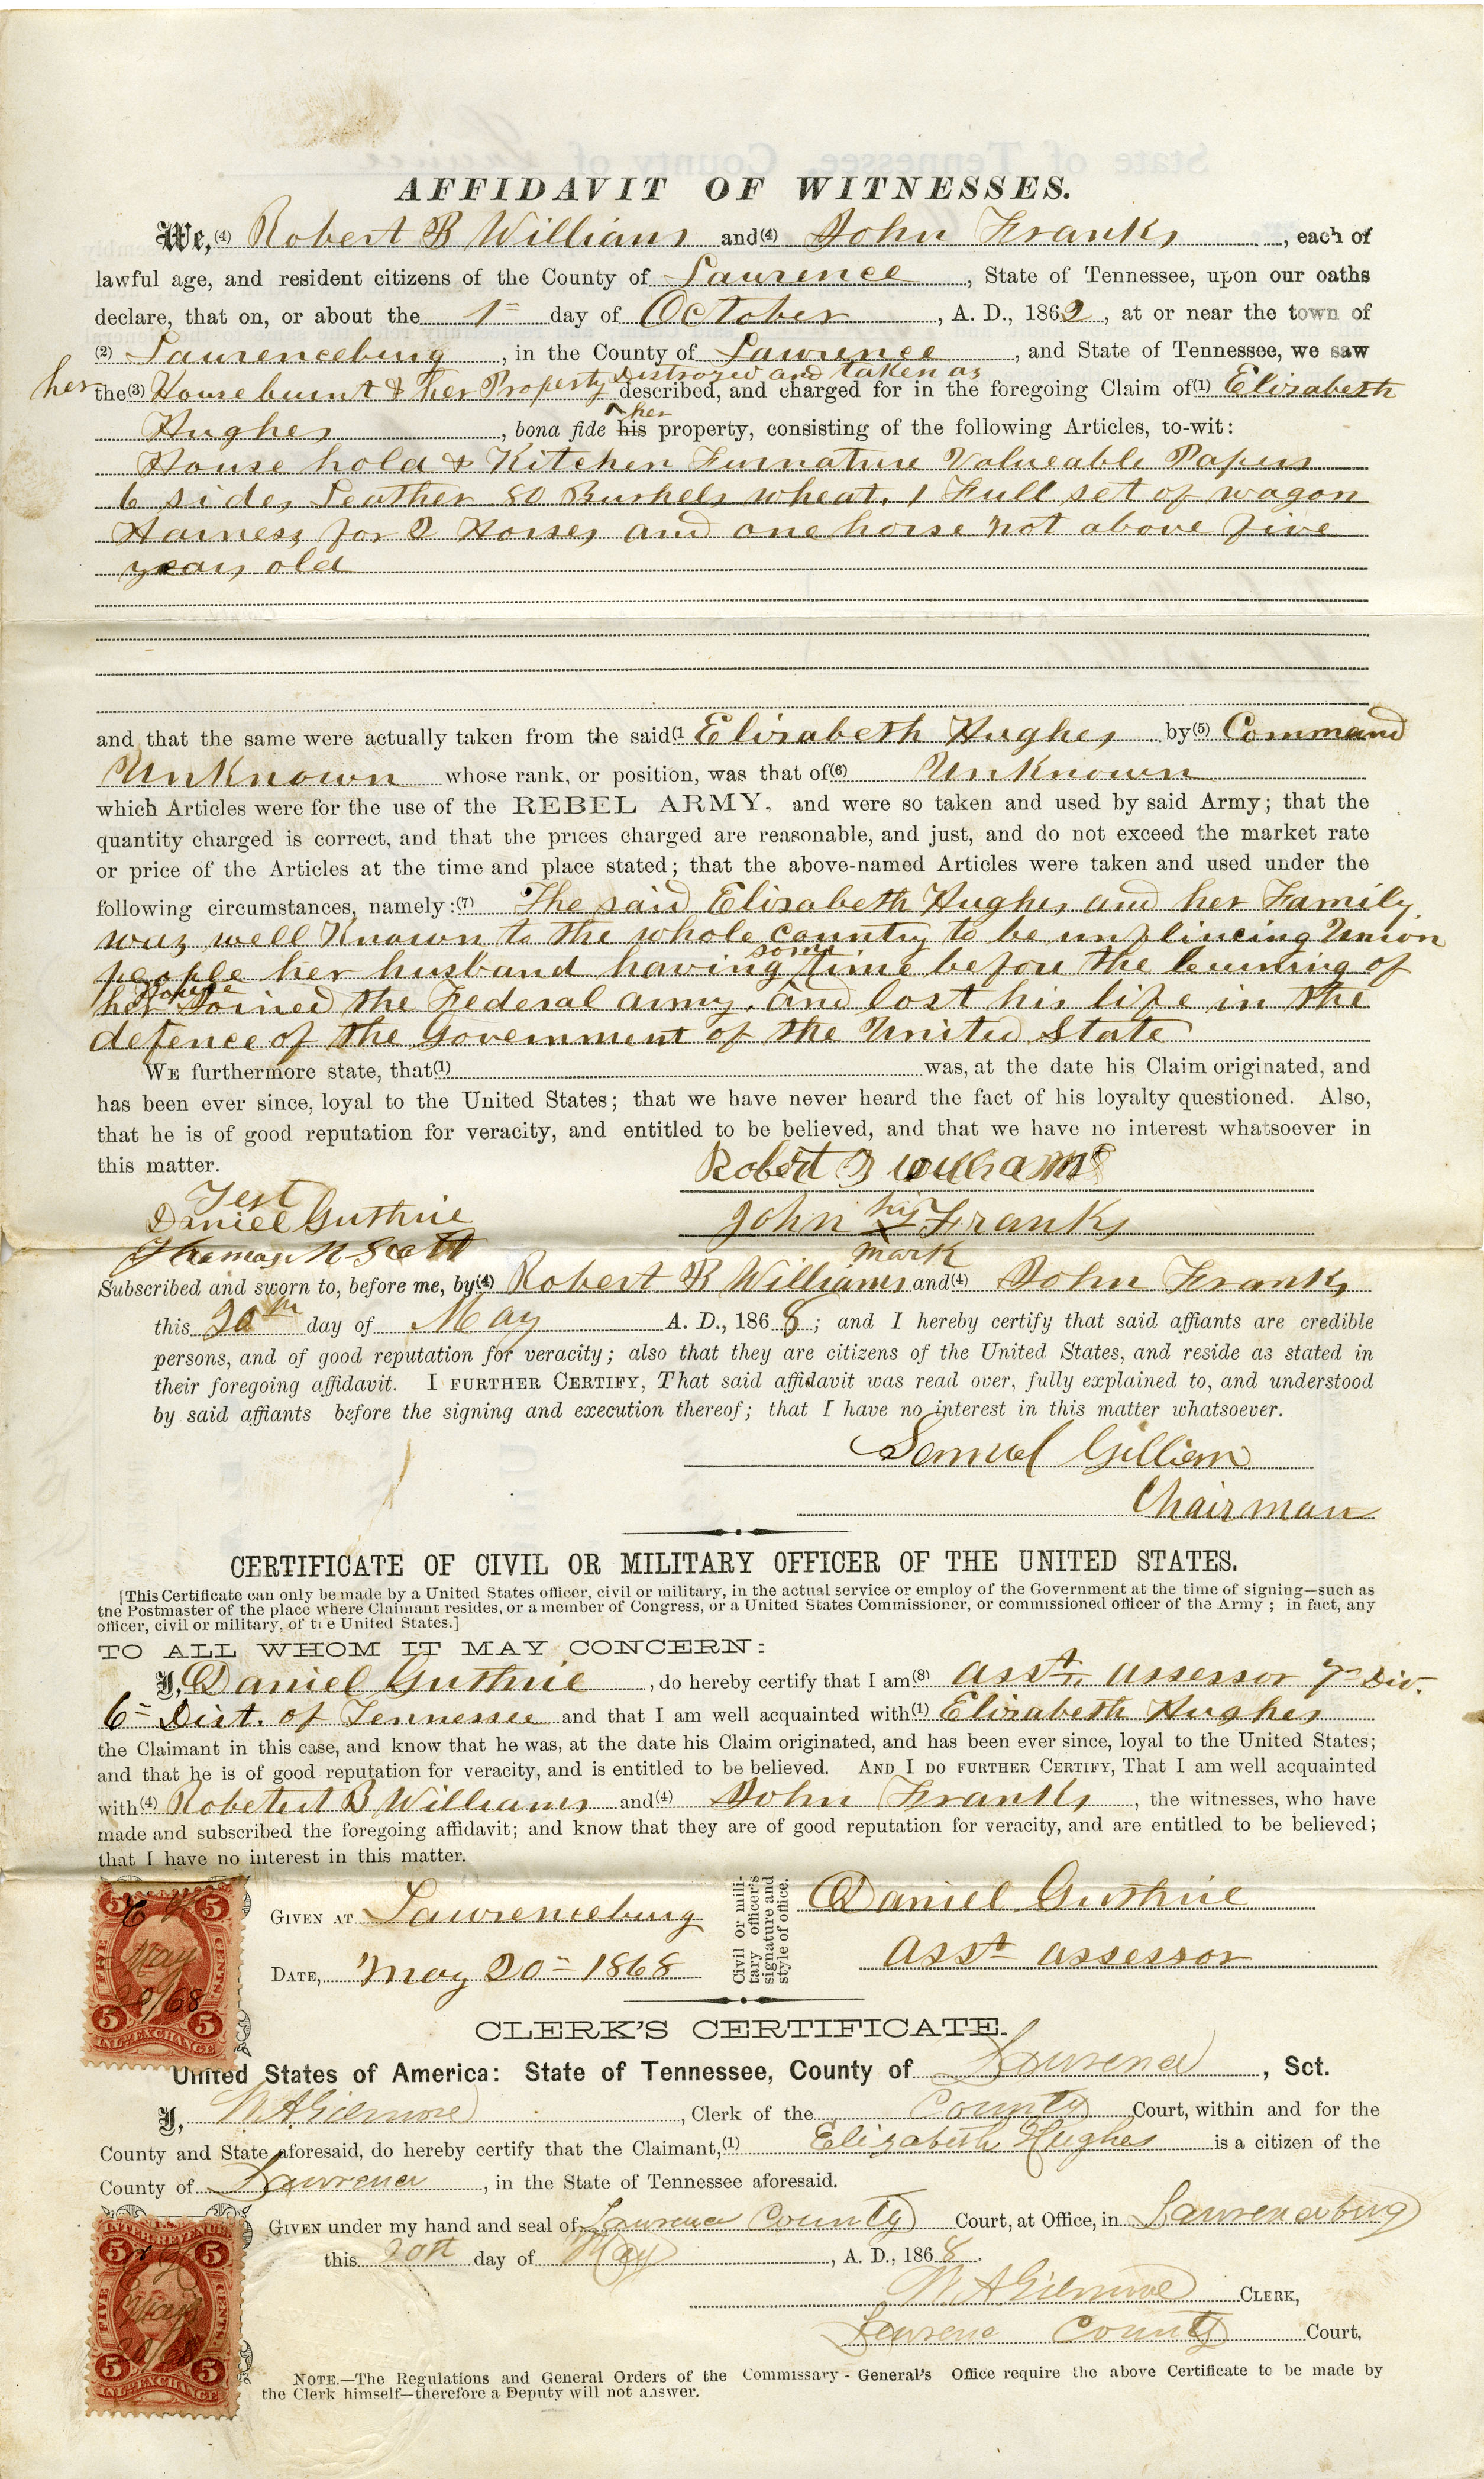 AFFIDAVIT OF WITNESSES.
We,(4) Robert B Williams and(4) John Franks, each of
lawful age, and resident citizens of the County of Lawrence, State of Tennessee, upon our oaths
declare, that on, or about the 1= day of October, A. D., 1862, at or near the town of
(2) Laurenceburg, in the County of Lawrence, and State of Tennessee, we saw
Distroyed and taken as
her the(3) House burnt & her Property described, and charged for in the foregoing Claim of(1) Elizabeth
her
Hughes, bona fide his property, consisting of the following Articles, to-wit:
House hold & Kitchen Furnature Valueable Papers
6 sides Leather 80 Bushels wheat. 1 Full set of wagon
Harness for 2 Horses and one horse not above five
years old
and that the same were actually taken from the said(1 Elizabeth Hughes by(5) Command
Unknown whose rank, or position, was that of(6) Unknown
which Articles were for the use of the REBEL ARMY, and were so taken and used by said Army; that the
quantity charged is correct, and that the prices charged are reasonable, and just, and do not exceed the market rate
or price of the Articles at the time and place stated; that the above-named Articles were taken and used under the
following circumstances, namely:(7) The said Elizabeth Hughes and her Family
was well Known to the whole country to be unflincing Union
some
people her husband having time before the burning of
House
her Joined the Federal army. And lost his life in the
defence of the Government of the United State
WE furthermore state, that(1) was, at the date his Claim originated, and
has been ever since, loyal to the United States; that we have never heard the fact of his loyalty questioned. Also,
that he is of good reputation for veracity, and entitled to be believed, and that we have no interest whatsoever in
this matter.
Robert B Williams
Test
Daniel Guthrie
John his x mark Franks
Thomas N Scott
Subscribed and sworn to, before me, by(4) Robert B Williams and(4) John Franks,
this 20th day of May A. D., 1868; and I hereby certify that said affiants are credible
persons, and of good reputation for veracity; also that they are citizens of the United States, and reside as stated in
their foregoing affidavit. I FURTHER CERTIFY, That said affidavit was read over, fully explained to, and understood
by said affiants before the signing and execution thereof; that I have no interest in this matter whatsoever.
Samuel Gilliam
Chairman
CERTIFICATE OF CIVIL OR MILITARY OFFICER OF THE UNITED STATES.
[This Certificate can only be made by a United States officer, civil or military, in the actual service or employ of the Government at the time of signing—such as
the Postmaster of the place where Claimant resides, or a member of Congress, or a United States Commissioner, or commissioned officer of the Army; in fact, any
officer, civil or military, of the United States.]
TO ALL WHOM IT MAY CONCERN:
I, Daniel Guthrie, do hereby certify that I am(8) asst. assessor 7= Div.
6= Dist. of Tennessee and that I am well acquainted with(1) Elizabeth Hughes
the Claimant in this case, and know that he was, at the date his Claim originated, and has been ever since, loyal to the United States;
and that he is of good reputation for veracity, and is entitled to be believed. AND I DO FURTHER CERTIFY, That I am well acquainted
with(4) Robetert B Williams and(4) John Franks, the witnesses, who have
made and subscribed the foregoing affidavit; and know that they are of good reputation for veracity, and are entitled to be believed;
that I have no interest in this matter.
GIVEN AT Lawrenceburg
DATE, May 20= 1868
Civil or mili-
tary officer's
signature and
style of office.
Daniel Guthrie
asst assessor
5 5
May
20/68
FIVE CENTS
5 5
INL. EXCHANGE
CLERK'S CERTIFICATE.
United States of America: State of Tennessee, County of Lawrence, Sct.
I, W A Gilmore, Clerk of the County Court, within and for the
County and State aforesaid, do hereby certify that the Claimant,(1) Elizabeth Hughes is a citizen of the
County of Lawrence, in the State of Tennessee aforesaid.
GIVEN under my hand and seal of Lawrence County Court, at Office, in Lawrenceburg
this 20th day of May, A. D., 1868.
W A Gilmore CLERK,
Lawrence County Court.
INTER. REVENUE
5 5
May
20/68
FIVE CENTS
5 5
INL. EXCHANGE
NOTE.—The Regulations and General Orders of the Commissary-General's Office require the above Certificate to be made by
the Clerk himself—therefore a Deputy will not answer.